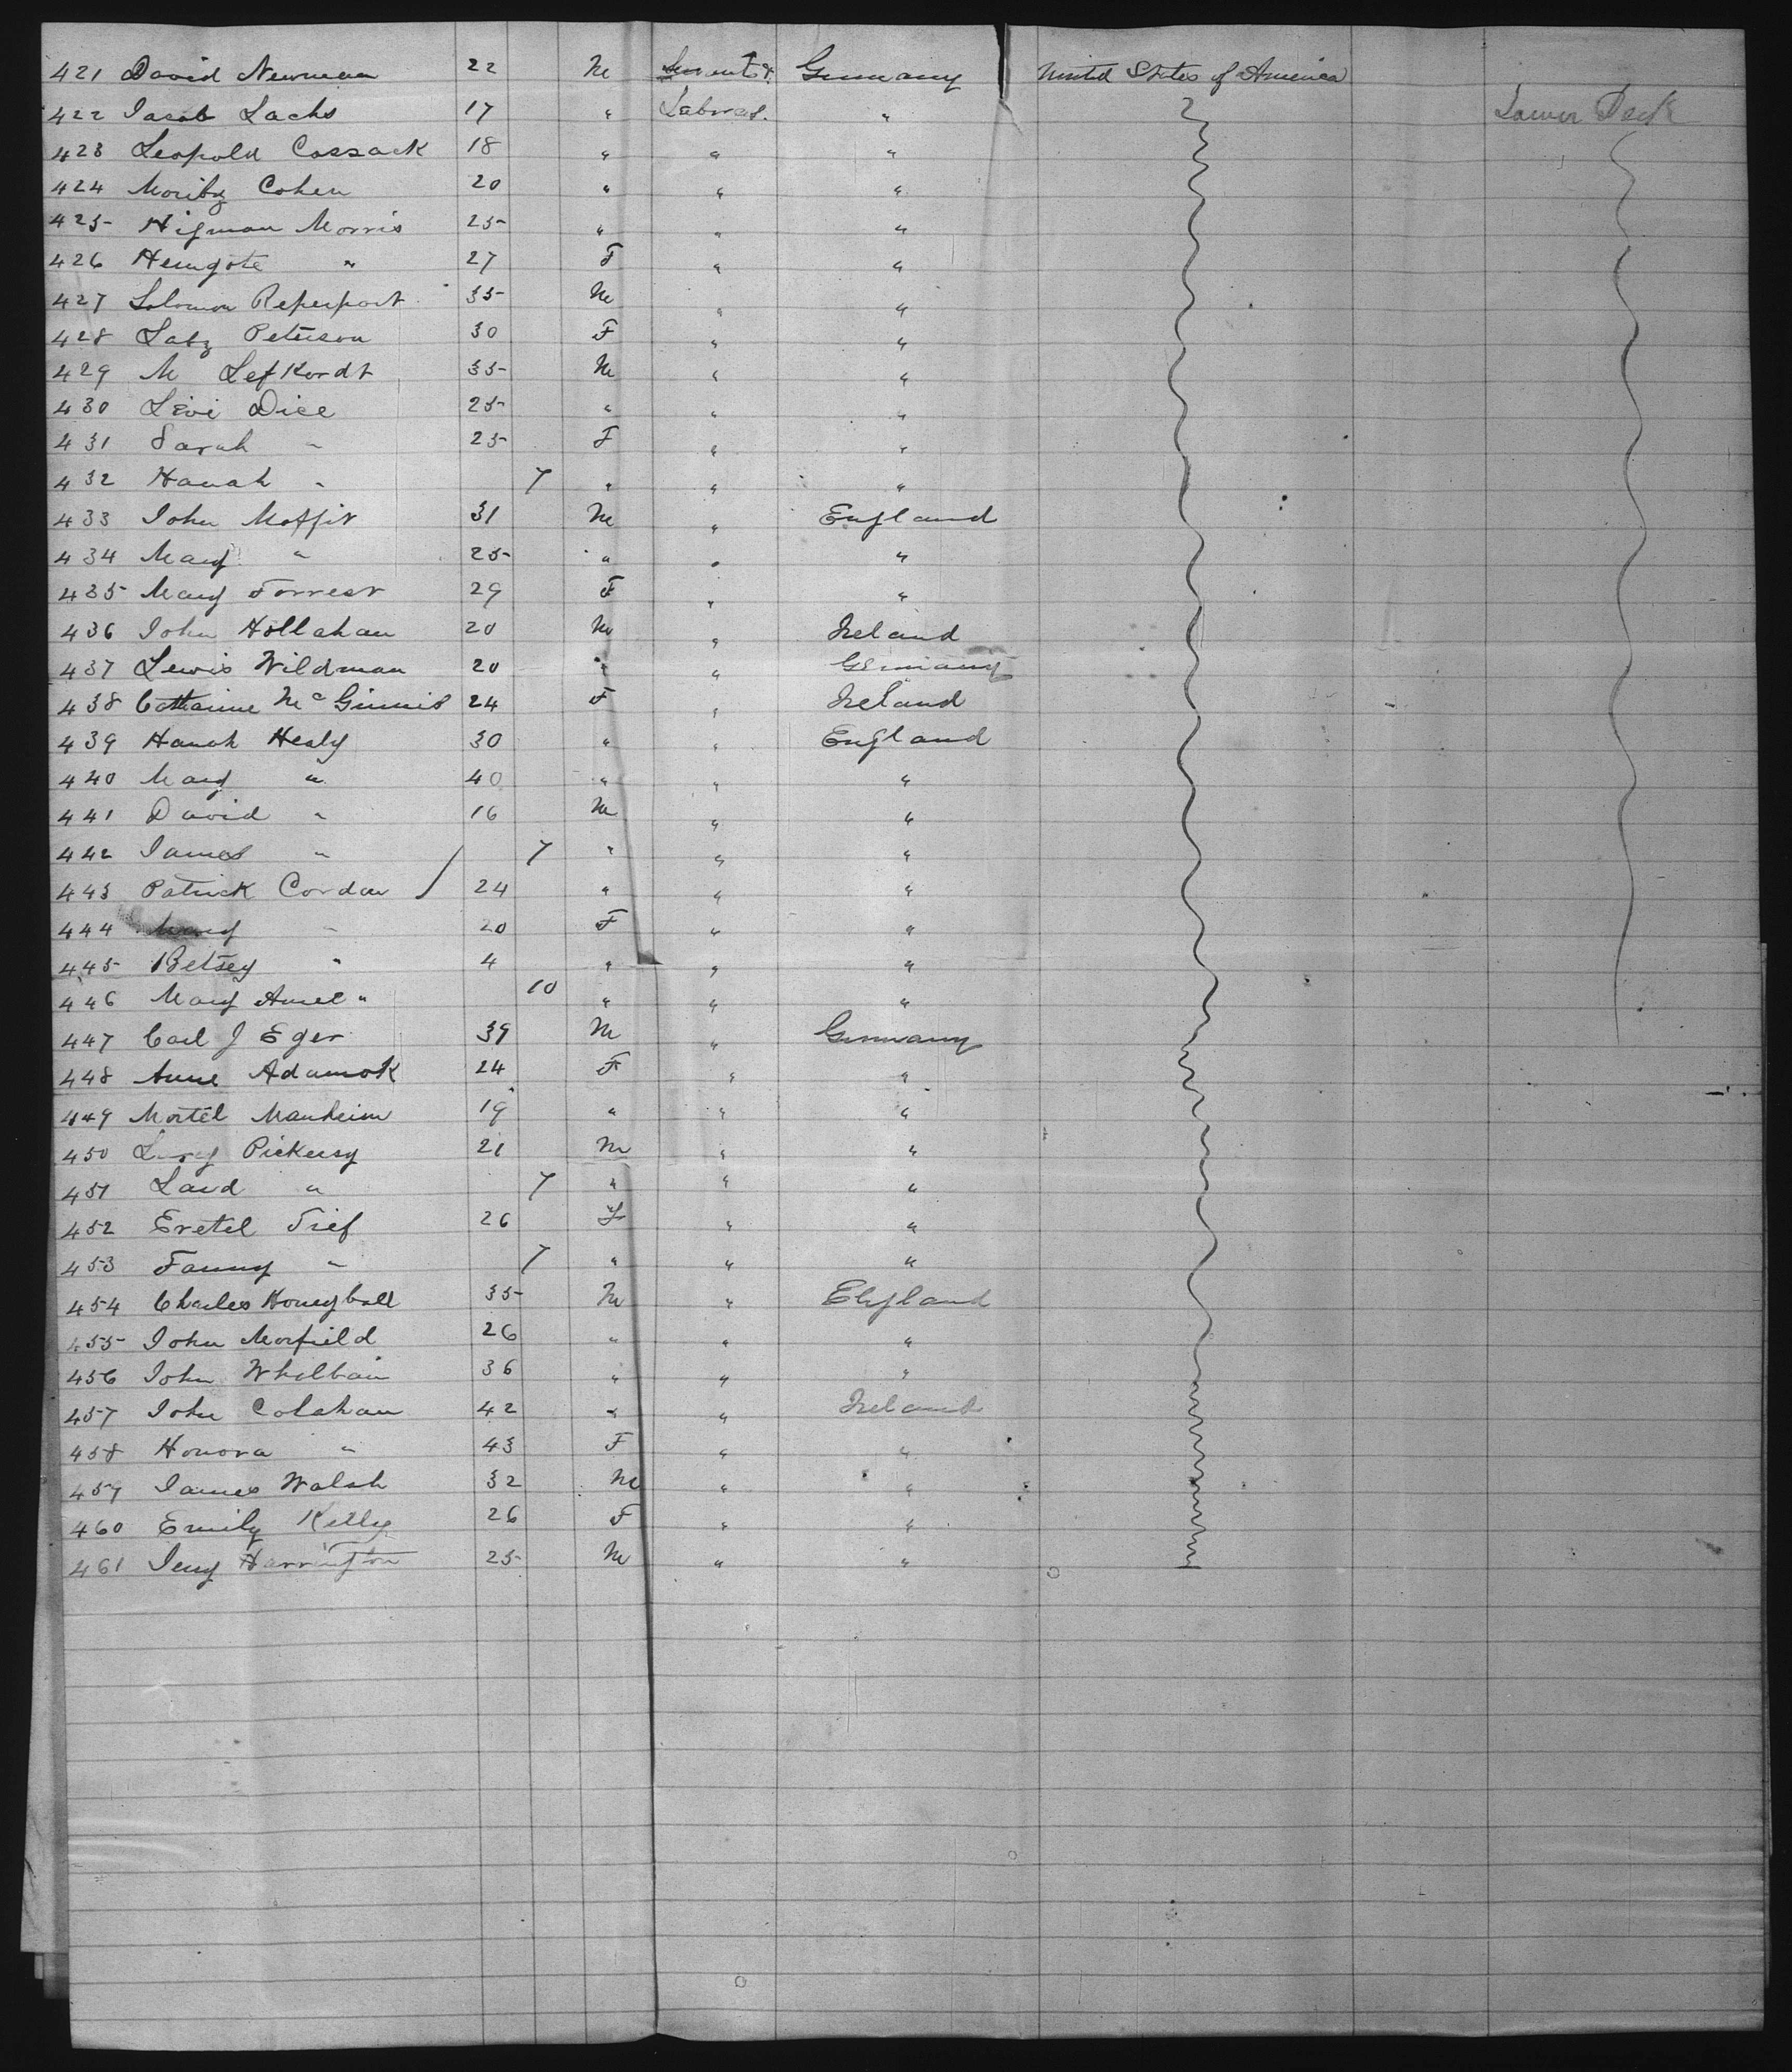 421 David Newman 22 M Servants & Germany United States of America
422 Jacob Lachs 17 " Labores. " Lower Deck
423 Leopold Cossack 18 " " "
424 Moritz Cohen 20 " " "
425 Higman Morris 25 " " "
426 Hemgote " 27 F " "
427 Solomon Reperport 35 M " "
428 Latz Peterson 30 F " "
429 M Lefkordt 35 M " "
430 Levi Dice 25 " " "
431 Sarah " 25 F " "
432 Hanah " 7 " " "
433 John Moffit 31 M " England
434 Mary " 25 " " "
435 Mary Forrest 29 F " "
436 John Hollahan 20 M " Ireland
437 Lewis Wildman 20 " " Germany
438 Catharine McGinnis 24 F " Ireland
439 Hanah Healy 30 " " England
440 Mary " 40 " " "
441 David " 16 M " "
442 James " 7 " " "
443 Patrick Cordan 24 " " "
444 Mary " 20 F " "
445 Betsey " 4 " " "
446 Mary Anne " 10 " " "
447 Carl J Eger 39 M " Germany
448 Anne Adamok 24 F " "
449 Mortel Manheim 19 " " "
450 Pickersy 21 M " "
451 " 7 " " "
452 Eretel Trief 26 F " "
453 Fanny " 7 " " "
454 Charles Honeyball 35 M " England
455 John Morfield 26 " " "
456 John Whelbain 36 " " "
457 John Colahan 42 " " Ireland
458 Honora " 43 F " "
459 James Walsh 32 M " "
460 Emily Kelly 26 F " "
461 Jerry Harrington 25 M " "